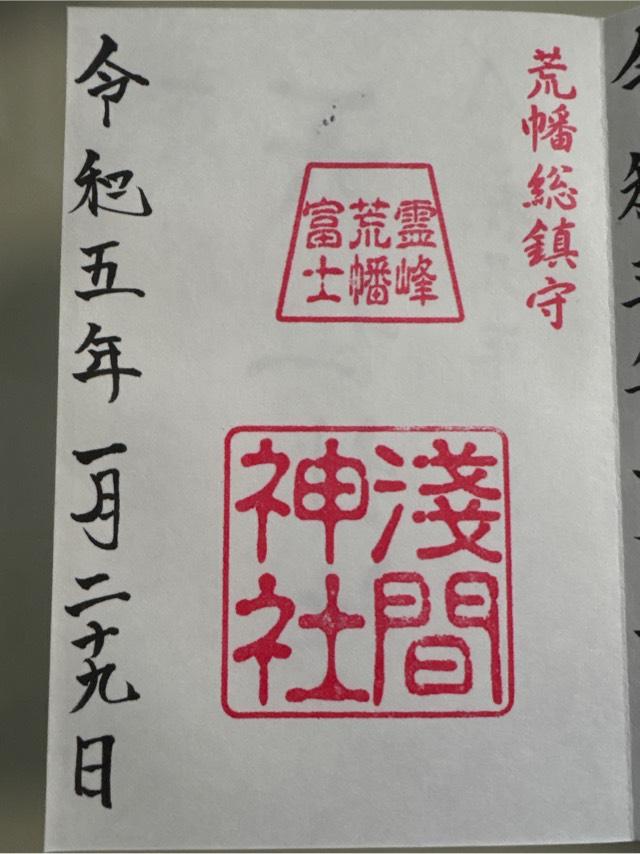 荒幡総鎮守
霊峰
荒幡
富士
淺間
神社
令和五年一月二十九日